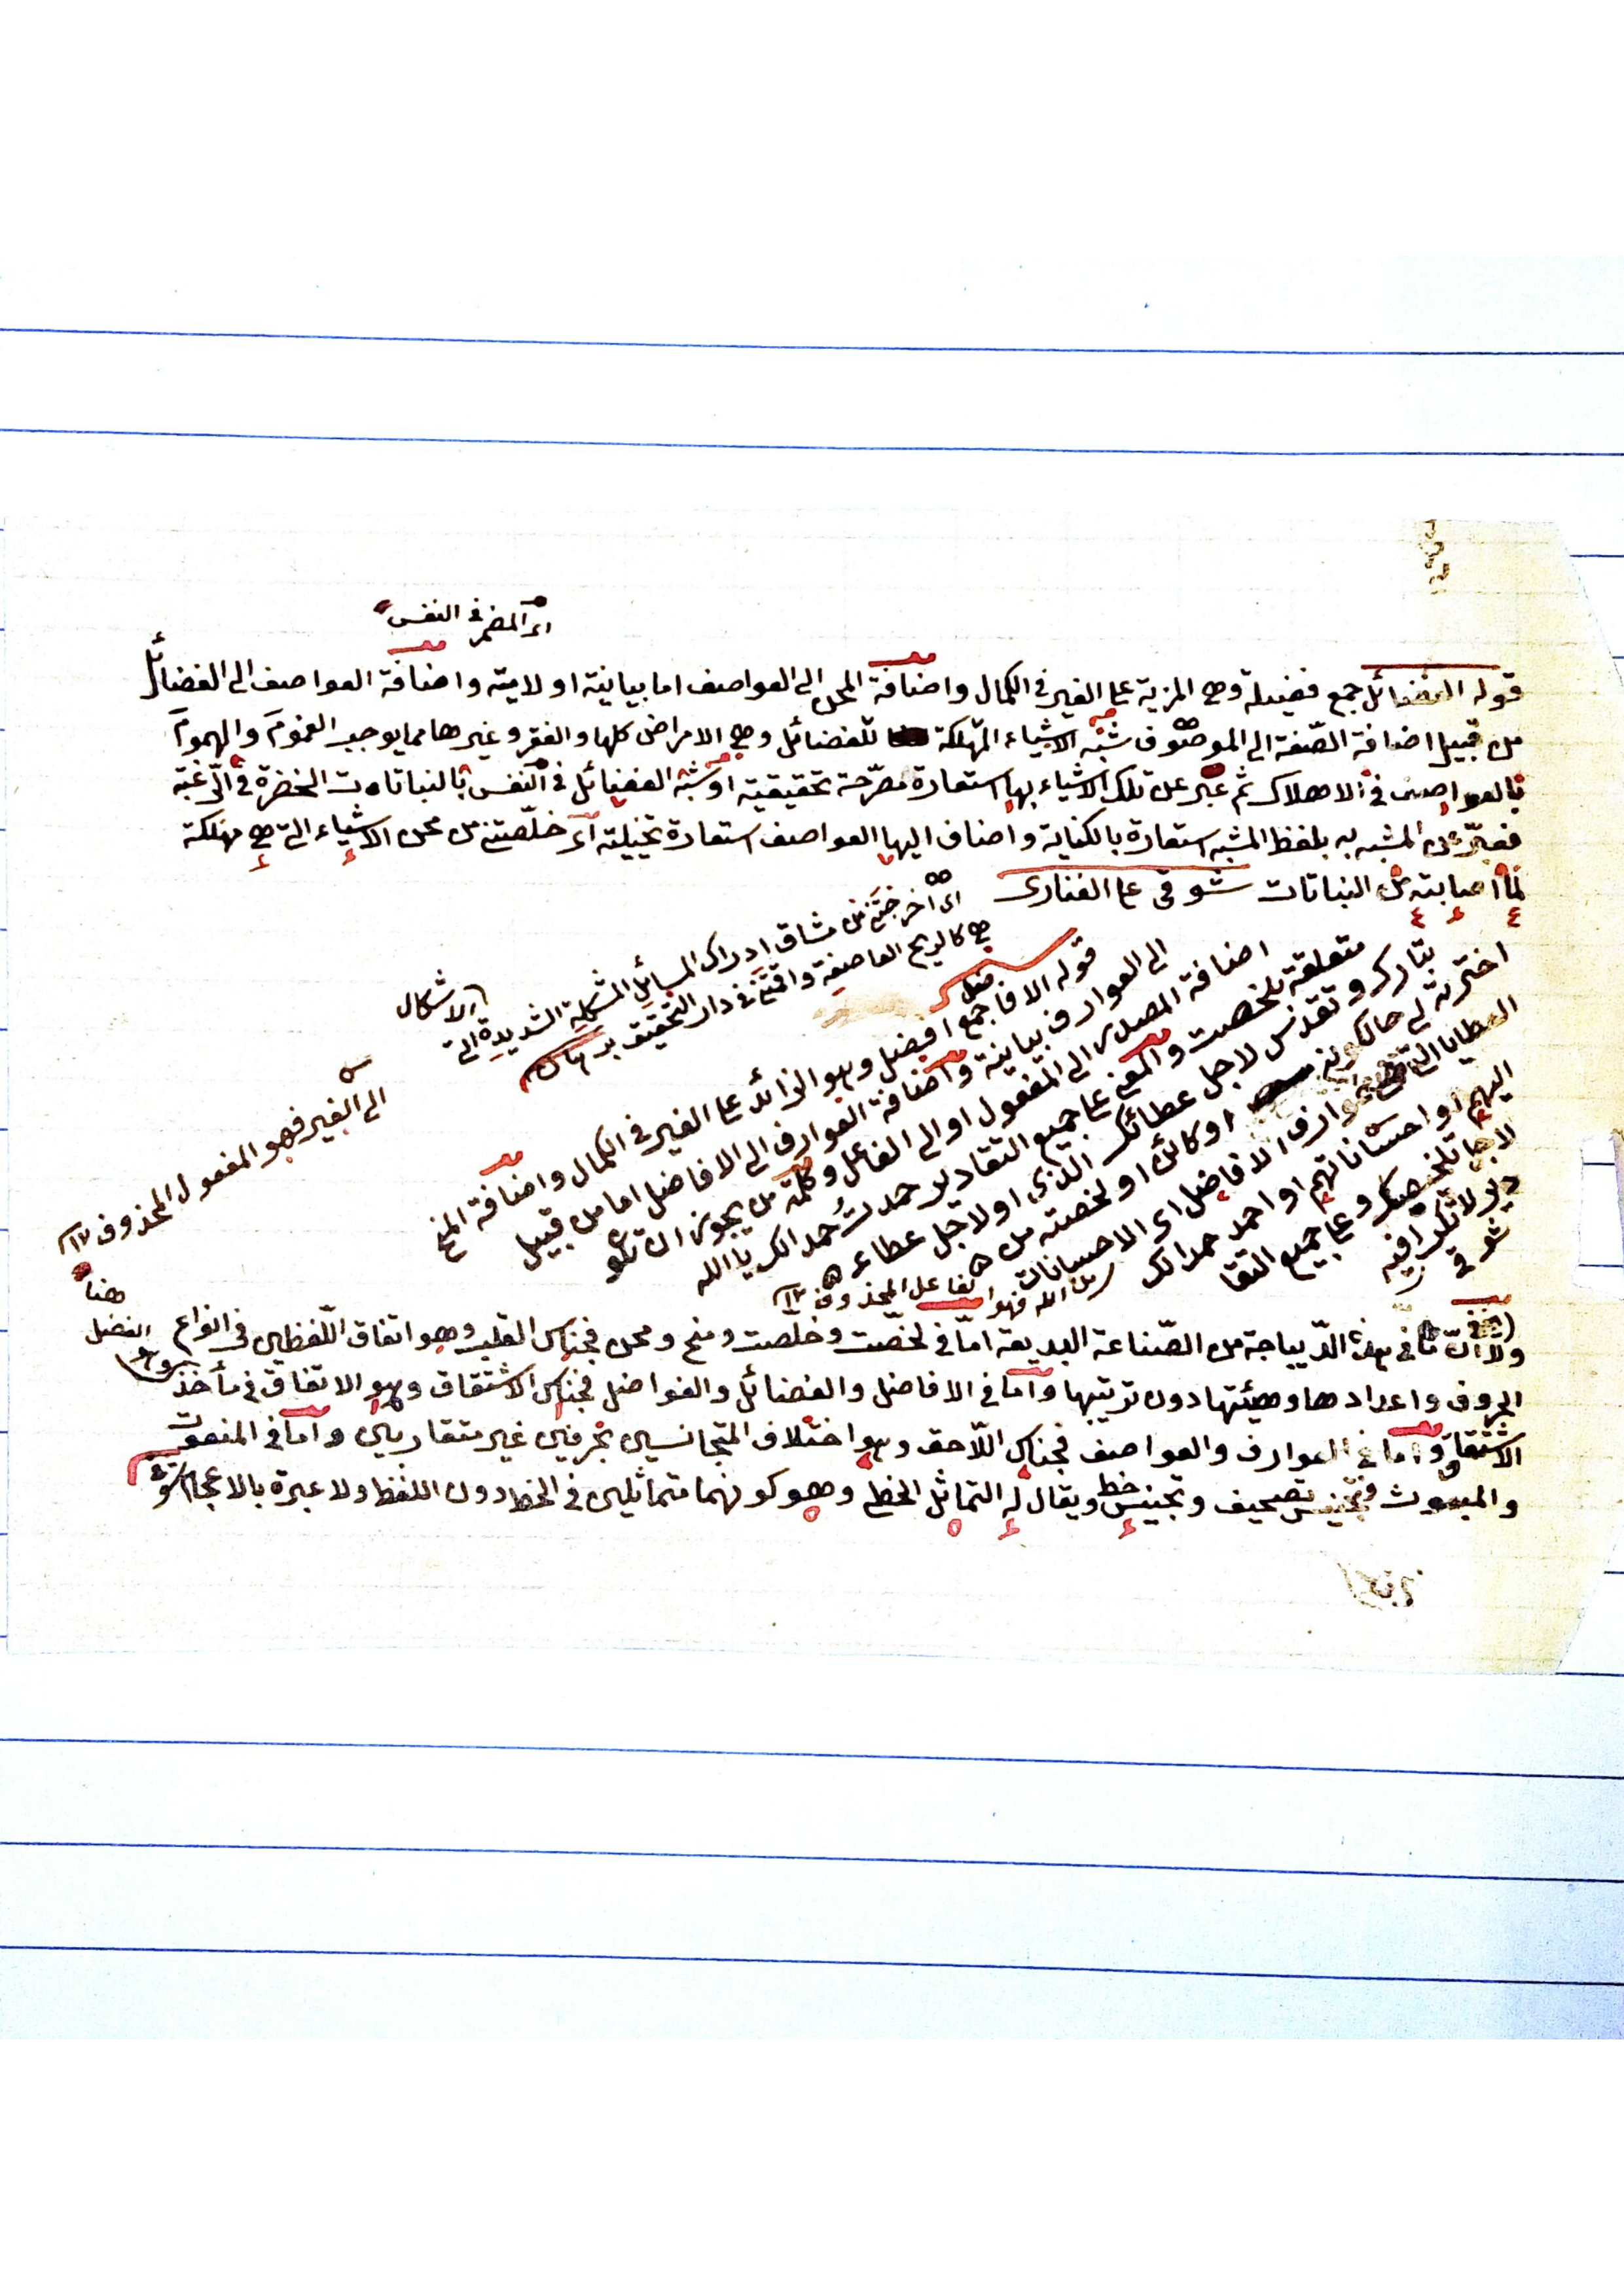 اى المضمر فى النفس
قوله الفضائل جمع فضيلة وهى المزية على الغير فى الكمال واضافة المحن الى العواصف اما بيانية او لامية واضافة العواصف الى الفضائل
من قبيل اضافة الصّفة الى الموصوف شبّه الاشياء المهلكة للفضائل وهى الامراض كلها والفقر وغيرها مما يوجب الغموم والهموم
بالعواصف فى الاهلاك ثم عبّر عن تلك الاشياء بها استعارة مصرّحة تحقيقية او شبّه الفضائل فى النفس بالنباتات الخضرة فى الرّغبة
فعبّر عن المشبه به بلفظ المشبه استعارة بالكناية واضاف اليها العواصف استعارة تخييلية اى خلّصتنى من محن الاشياء التى هى مهلكة
لما اصابته من النباتات شوقى على الفنارى
اى اخرجتنى من مشاق ادراك المسائل المشكلة الشديدة التى
هى كالريح العاصفة واقمتنى فى دار التحقيق
الاشكال
قوله الافاضل جمع افضل وهو الزائد على الغير فى الكمال واضافة المنح
الى العوارف بيانية واضافة العوارف الى الافاضل اما من قبيل
اضافة المصدر الى المفعول او الى الفاعل وكلمة من يجوز ان تكو
متعلقة بلخصت والمعنى على جميع التقادير حمدت حمدا لك يا الله
تبارك وتقدس لاجل عطائك الذى او لاجل عطاء
اخترته لى حال كونه او كائن او لخصته من
العطايا التى عوارف الافاضل اى الاحسانات
اليهم او احساناتهم او احمد حمدا لك
لاجل تلخيصك وعلى جميع التقا
دير لا تكرا فيه
شوقى
الى الغير فهو المفعول المحذوف ١٢
من الله فهو الفاعل المحذوف ١٢
هنا
ولا فى هذه الدّيباجة من الصّناعة البديعة امّا فى لخّصت وخلّصت ومنح ومحن فجناس القلب وهو اتفاق اللّفظين فى انواع
الفضل
الحروف واعدادها وهيئتها دون ترتيبها وامّا فى الافاضل والفضائل والفواضل فجناس الاشتقاق وهو الاتفاق فى مأخذ
الاشتقاق وامّا فى العوارف والعواصف فجناس اللّاحق وهو اختلاف المتجانسين بحرفين غير متقاربين وامّا فى المنعوت
والمبعوث فتجنيس تصحيف وتجنيس خط ويقال له التماثل الخطى وهو كونهما متماثلين فى الخط دون اللفظ ولا عبرة بالاعجام